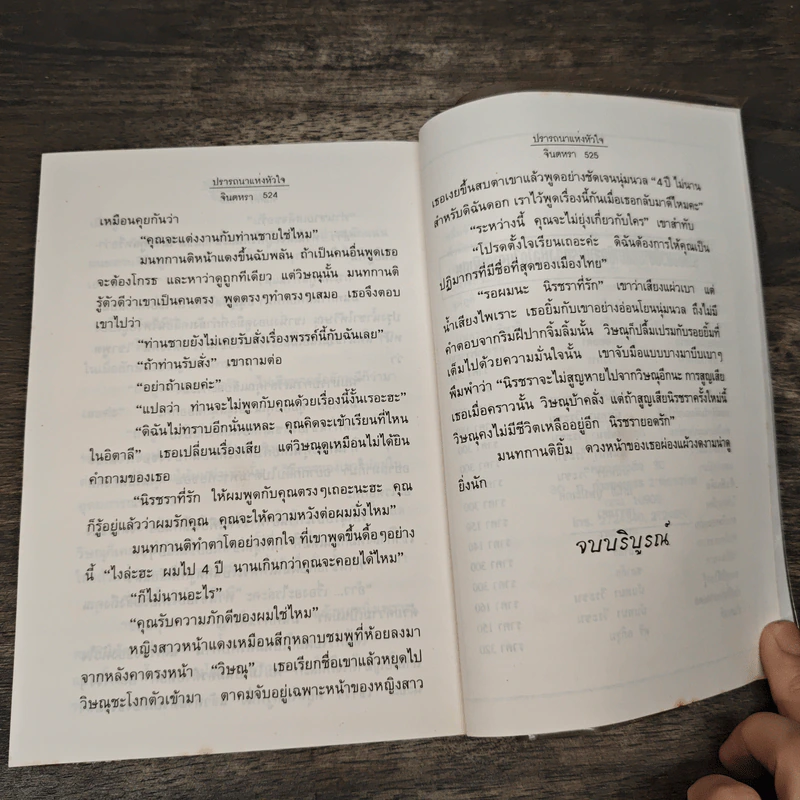 ปรารถนาแห่งหัวใจ
จินตหรา 524
เหมือนคุยกันว่า
“คุณจะแต่งงานกับท่านชายใช่ไหม”
มนทกานติหน้าแดงขึ้นฉับพลัน ถ้าเป็นคนอื่นพูดเธอ
จะต้องโกรธ และหาว่าดูถูกทีเดียว แต่วิษณุนั้น มนทกานติ
รู้ตัวดีว่าเขาเป็นคนตรง พูดตรงๆทำตรงๆเสมอ เธอจึงตอบ
เขาไปว่า
“ท่านชายยังไม่เคยรับสั่งเรื่องพรรค์นี้กับฉันเลย”
“ถ้าท่านรับสั่ง” เขาถามต่อ
“อย่าถ้าเลยค่ะ”
“แปลว่า ท่านจะไม่พูดกับคุณด้วยเรื่องนี้งั้นเรอะฮะ”
“ดิฉันไม่ทราบอีกนั่นแหละ คุณคิดจะเข้าเรียนที่ไหน
ในอิตาลี” เธอเปลี่ยนเรื่องเสีย แต่วิษณุดูเหมือนไม่ได้ยิน
คำถามของเธอ
“นิรชราที่รัก ให้ผมพูดกับคุณตรงๆเถอะนะฮะ คุณ
ก็รู้อยู่แล้วว่าผมรักคุณ คุณจะให้ความหวังต่อผมมั่งไหม”
มนทกานติทำตาโตอย่างตกใจ ที่เขาพูดขึ้นดื้อๆอย่าง
นี้ “ไงล่ะฮะ ผมไป 4 ปี นานเกินกว่าคุณจะคอยได้ไหม”
“ก็ไม่นานอะไร”
“คุณรับความภักดีของผมใช่ไหม”
หญิงสาวหน้าแดงเหมือนสีกุหลาบชมพูที่ห้อยลงมา
จากหลังคาตรงหน้า “วิษณุ” เธอเรียกชื่อเขาแล้วหยุดไป
วิษณุชะโงกตัวเข้ามา ตาคมจับอยู่เฉพาะหน้าของหญิงสาว
ปรารถนาแห่งหัวใจ
จินตหรา 525
เธอเงยขึ้นสบตาเขาแล้วพูดอย่างชัดเจนนุ่มนวล “4 ปี ไม่นาน
สำหรับดิฉันดอก เราไว้พูดเรื่องนี้กันเมื่อเธอกลับมาดีไหมคะ”
“ระหว่างนี้ คุณจะไม่ยุ่งเกี่ยวกับใคร” เขาสำทับ
“โปรดตั้งใจเรียนเถอะค่ะ ดิฉันต้องการให้คุณเป็น
ปฏิมากรที่มีชื่อที่สุดของเมืองไทย”
“รอผมนะ นิรชราที่รัก” เขาว่าเสียงแผ่วเบา แต่
น้ำเสียงไพเราะ เธอยิ้มกับเขาอย่างอ่อนโยนนุ่มนวล ถึงไม่มี
คำตอบจากริมฝีปากจิ้มลิ้มนั้น วิษณุก็ปลื้มเปรมกับรอยยิ้มที่
เต็มไปด้วยความมั่นใจนั้น เขาจับมือแบบบางมาบีบเบาๆ
พึมพำว่า “นิรชราจะไม่สูญหายไปจากวิษณุอีกนะ การสูญเสีย
เธอเมื่อคราวนั้น วิษณุบ้าคลั่ง แต่ถ้าสูญเสียนิรชราครั้งใหม่นี้
วิษณุคงไม่มีชีวิตเหลืออยู่อีก นิรชรายอดรัก”
มนทกานติยิ้ม ดวงหน้าของเธอผ่องแผ้วงดงามน่าดู
ยิ่งนัก
จบบริบูรณ์